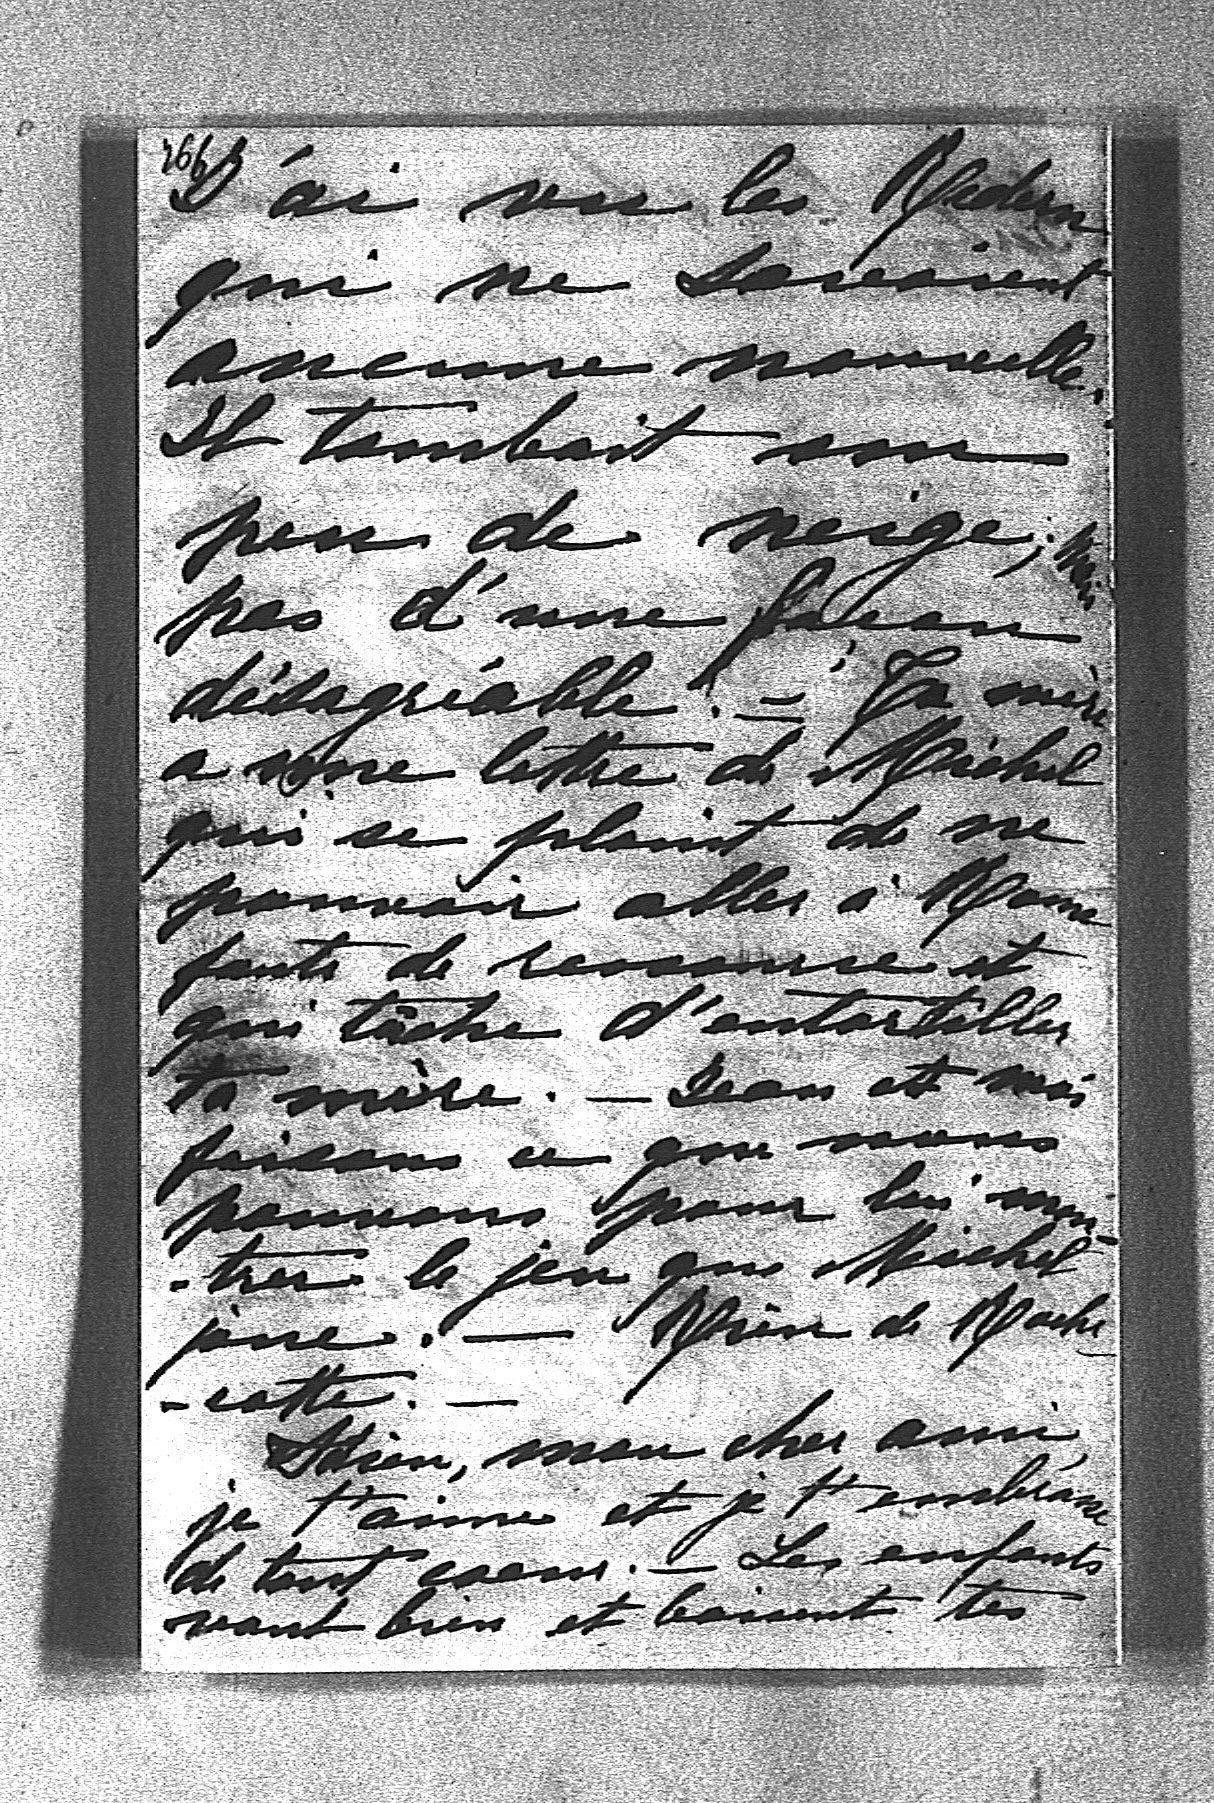 266
J'ai vu les Redern
qui ne savaient
aucune nouvelle.
Il tombait un
peu de neige, mais
pas d'une façon
désagréable. — Ta mère
a une lettre de Michel
qui se plaint de ne
pouvoir aller à Rome
faute de ressource et
qui tâche d'entortiller
ta mère. — Jean et moi
faisons ce que nous
pouvons pour lui mon-
-trer le jeu que Michel
joue. — Rien de Roche
-cotte. —
Adieu, mon cher ami,
je t'aime et je t'embrasse
de tout coeur. — Les enfants
vont bien et baisent tes